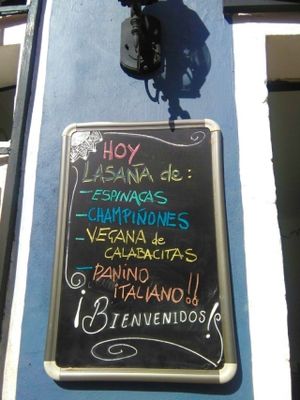 HOY
LASAÑA de:
- ESPINACAS
- CHAMPIÑONES
- VEGANA de
CALABACITAS
- PANINO
ITALIANO!!
¡BIENVENIDOS!